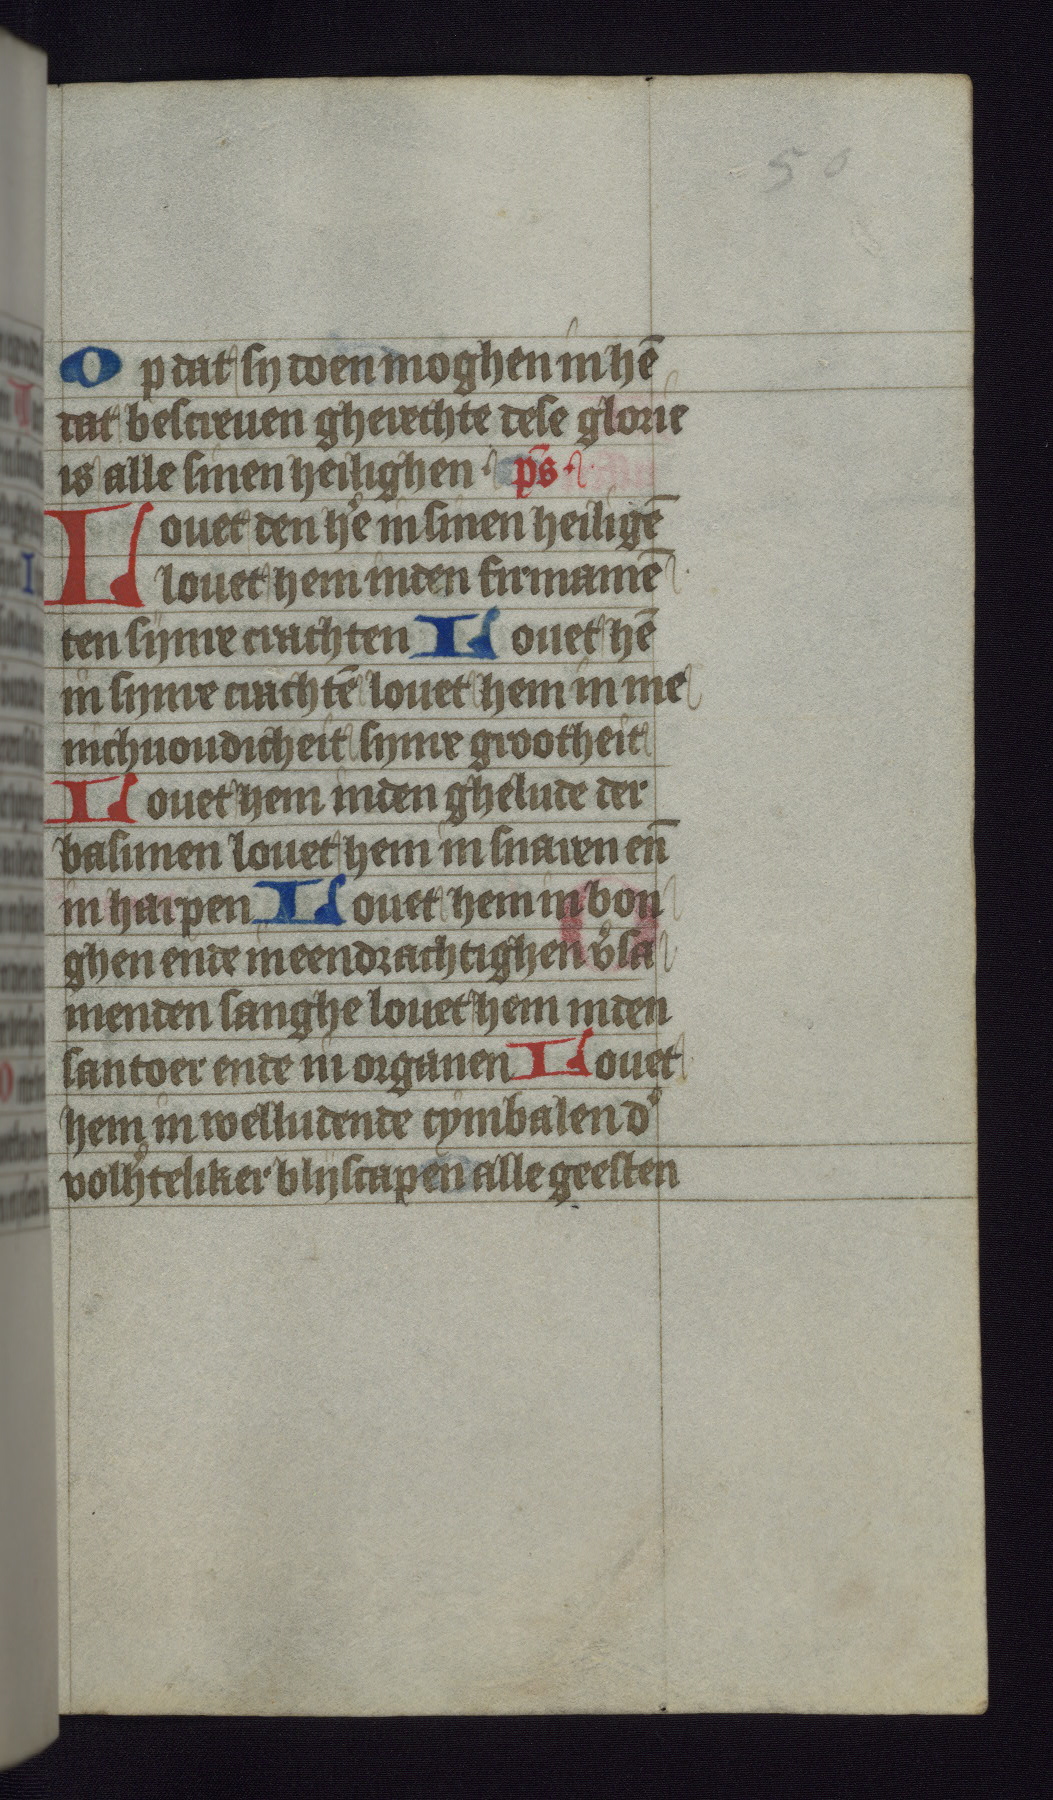 50
Op dat sy doen moghen in hē
dat bescreuen gherechte dese glorie
is alle sinen heilighen · ps̄ ·
Louet den hē in sinen heiligē
louet hem inden firmamē
ten sijnre crachten Louet hē
in sijnre crachtē louet hem in me
nichuoudicheit sijnre grootheit
Louet hem inden ghelude der
basunen louet hem in snaren en̄
in harpen Louet hem in bon
ghen ende in eendrachtighen vsa
menden sanghe louet hem inden
santoer ende in organen Louet
hem in welludende cymbalen d
volhteliker blijscapen alle geesten